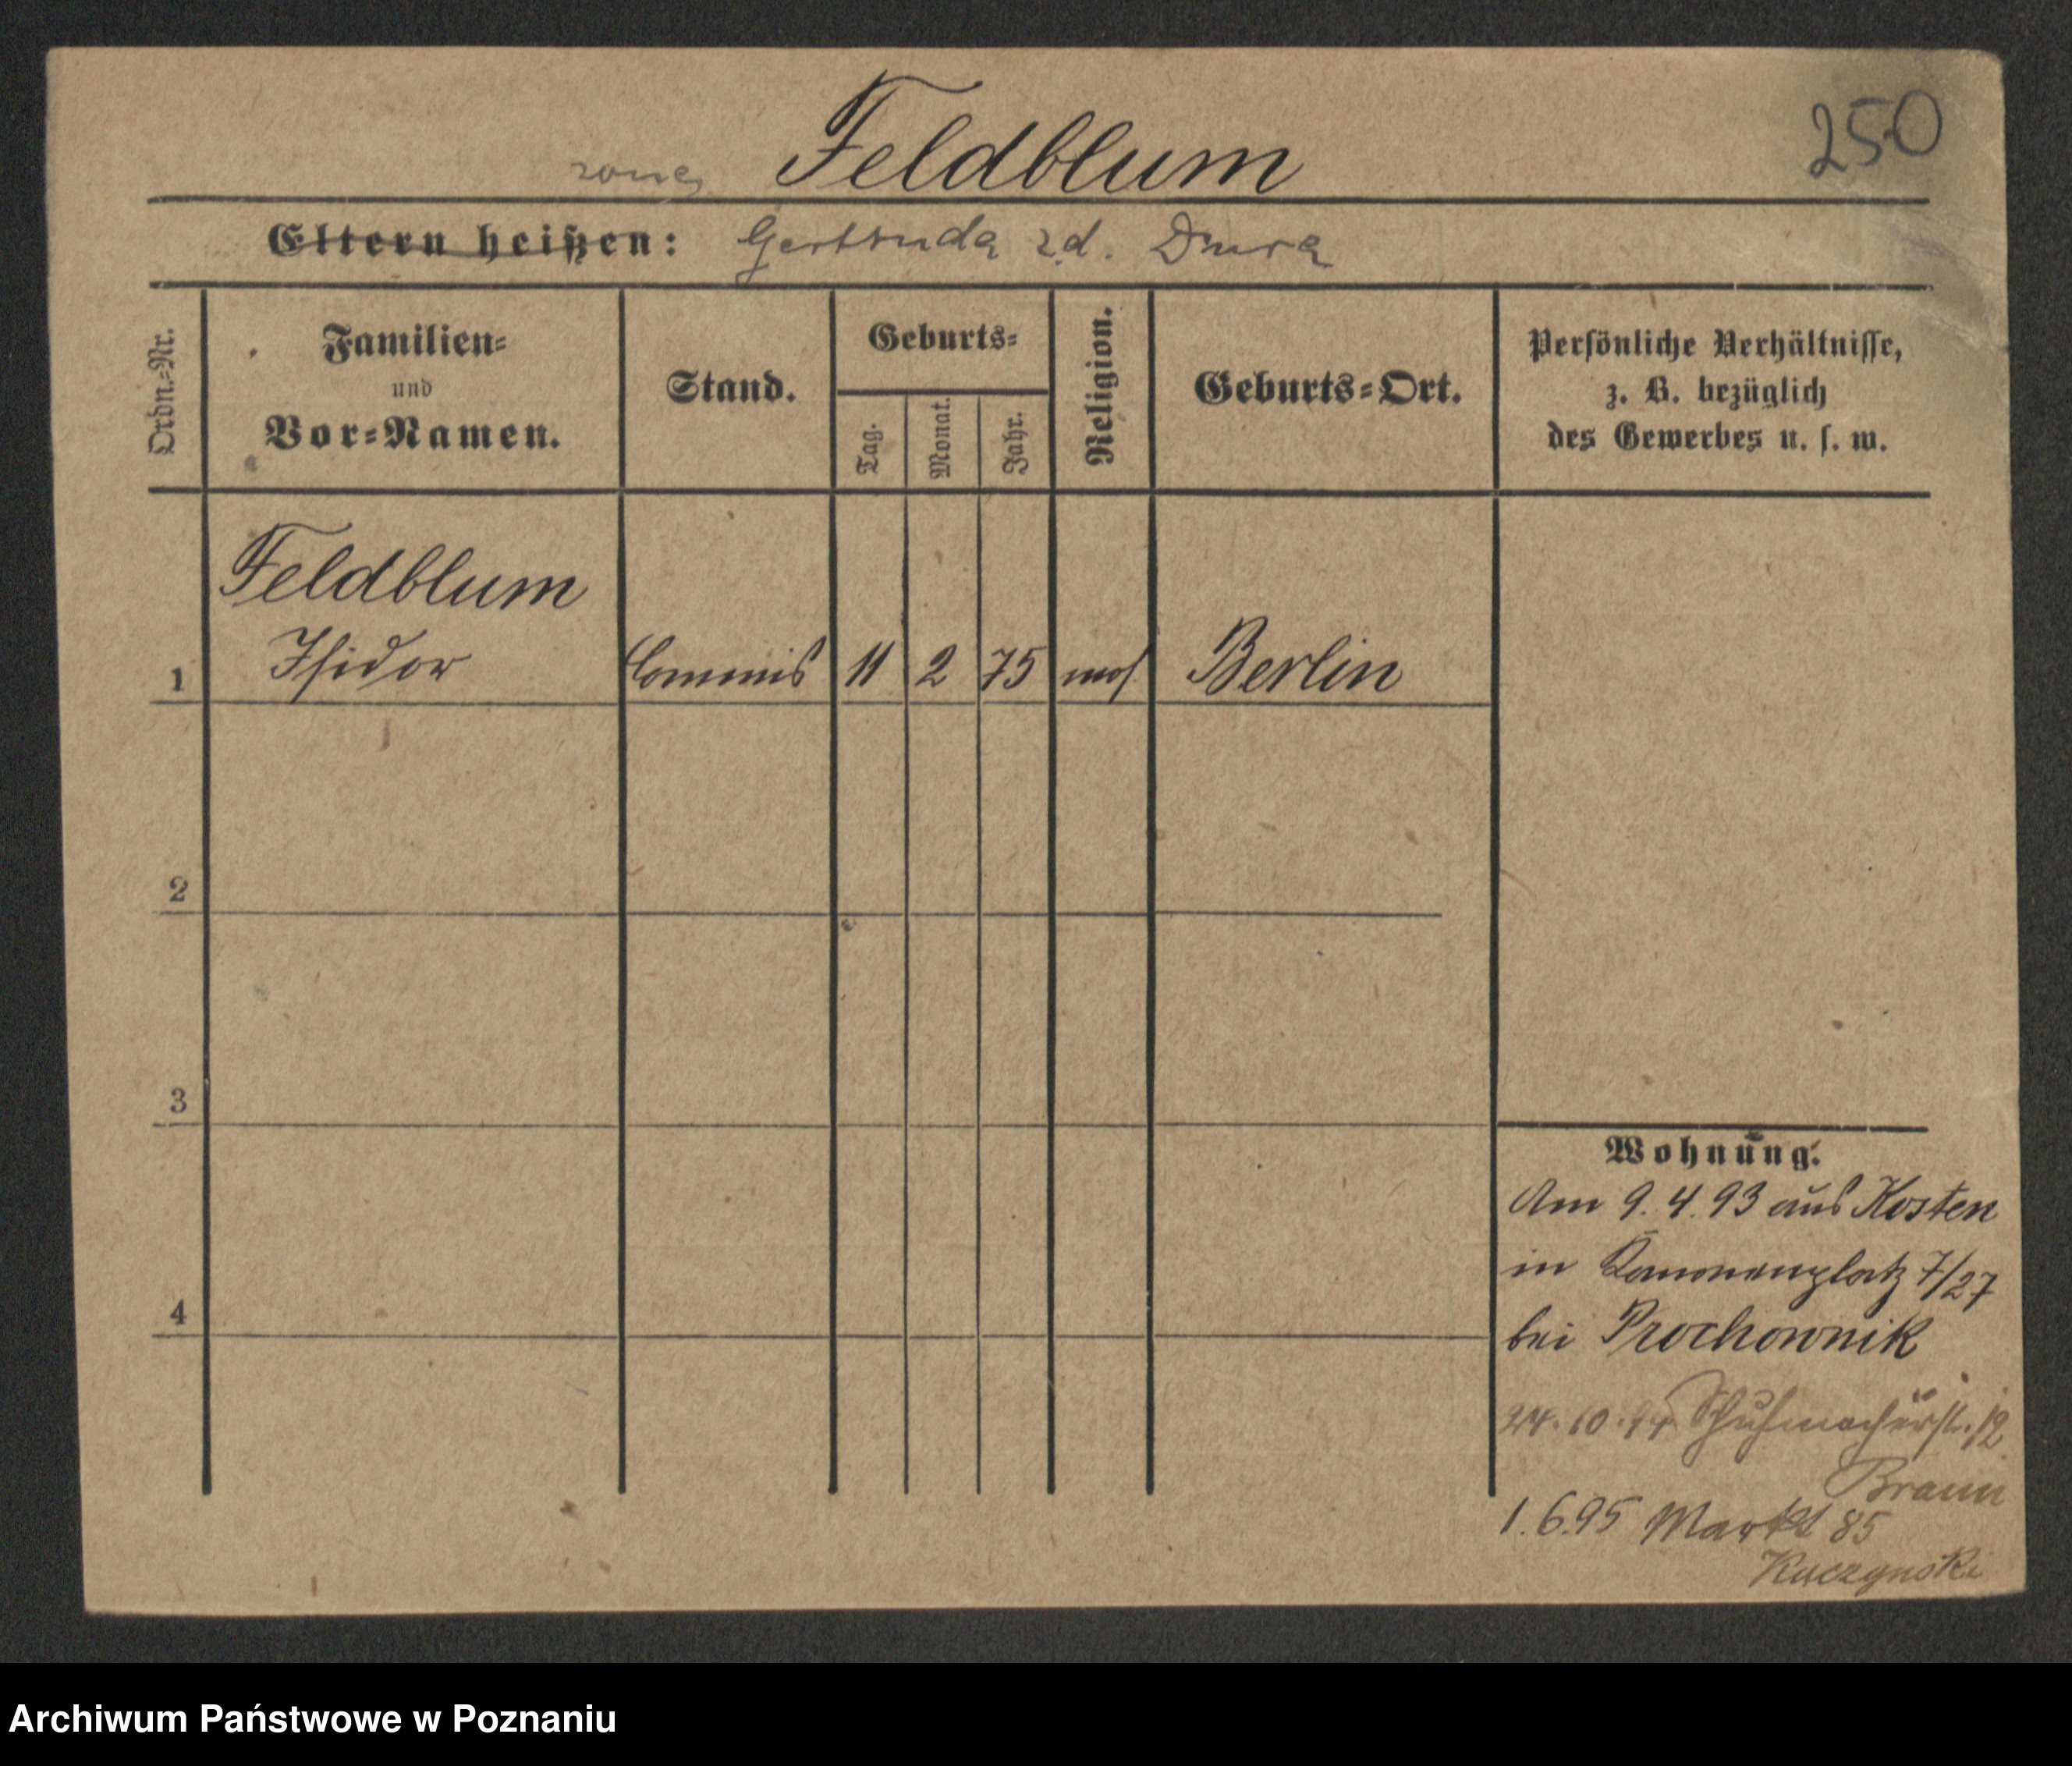 250
Feldblum
Eltern heißen: Gertruda z d.
Ordn.=Nr.
Familien=
und
Vor=Namen.
Stand.
Geburts=
Tag.
Monat.
Jahr.
Religion.
Geburts=Ort.
Persönliche Verhältnisse,
z. B. bezüglich
des Gewerbes u. s. w.
Feldblum
1 Isidor Commis 11 2 75 mos. Berlin
2
3
4
Wohnung.
Am 9. 4. 93 aus Kosten
in Kanonenplatz 7/27
bei Prochownik
24. 10. 94 Schuhmacherstr. 12
Braun
1. 6. 95 Markt 85
Kuczynski
Archiwum Państwowe w Poznaniu